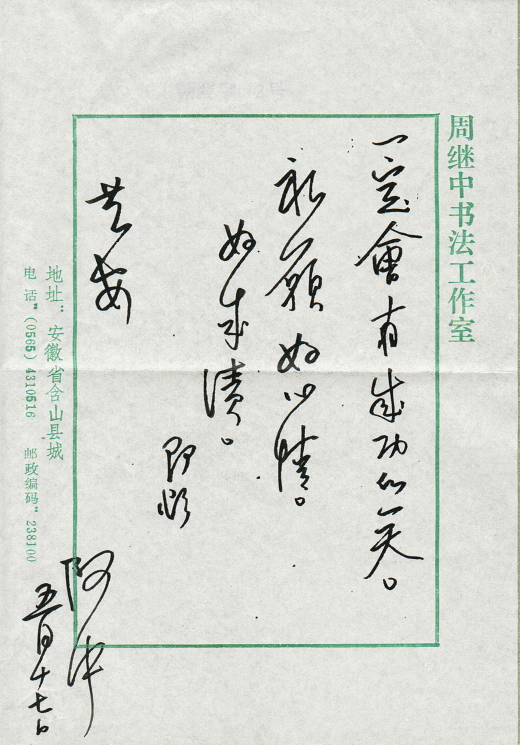 周继中书法工作室
一定會有成功的一天。
祝願好心情。
好成績。
即颂
共安
地址：安徽省含山县城
电话：(0565) 4310516 邮政编码：238100
阿中
五月十七日